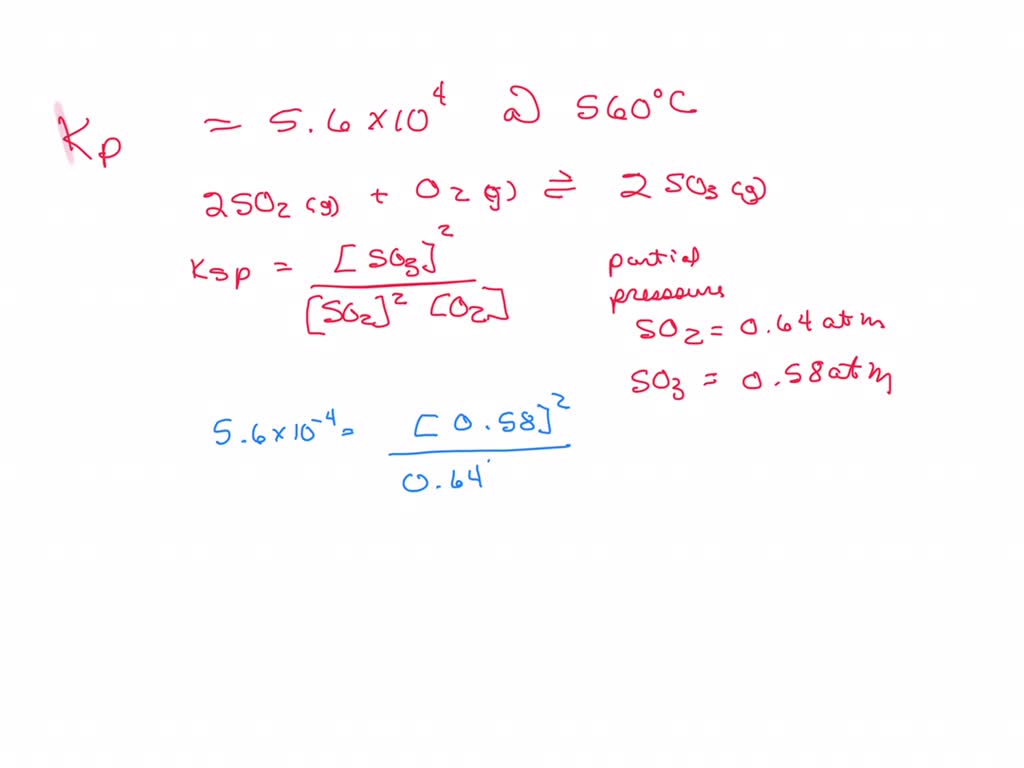 Kp = 5.6 x 10^4 a) 560°C
2SO2 (g) + O2 (g) ⇌ 2 SO3 (g)
Ksp = [SO3]^2 / [SO2]^2 [O2]
partial
pressure
SO2 = 0.64 atm
SO3 = 0.58 atm
5.6 x 10^-4 = [0.58]^2 / 0.64